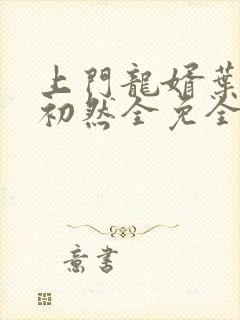 上門龍婿葉
初然全免全
意書